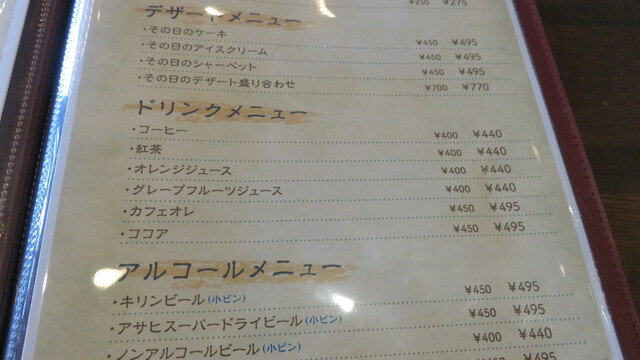 ¥250 ¥275
デザートメニュー
・その日のケーキ ¥450 ¥495
・その日のアイスクリーム ¥450 ¥495
・その日のシャーベット ¥450 ¥495
・その日のデザート盛り合わせ ¥700 ¥770
ドリンクメニュー
・コーヒー ¥400 ¥440
・紅茶 ¥400 ¥440
・オレンジジュース ¥400 ¥440
・グレープフルーツジュース ¥400 ¥440
・カフェオレ ¥450 ¥495
・ココア ¥450 ¥495
アルコールメニュー
・キリンビール(小ビン) ¥450 ¥495
・アサヒスーパードライビール(小ビン) ¥450 ¥495
・ノンアルコールビール(小ビン) ¥400 ¥440
¥495